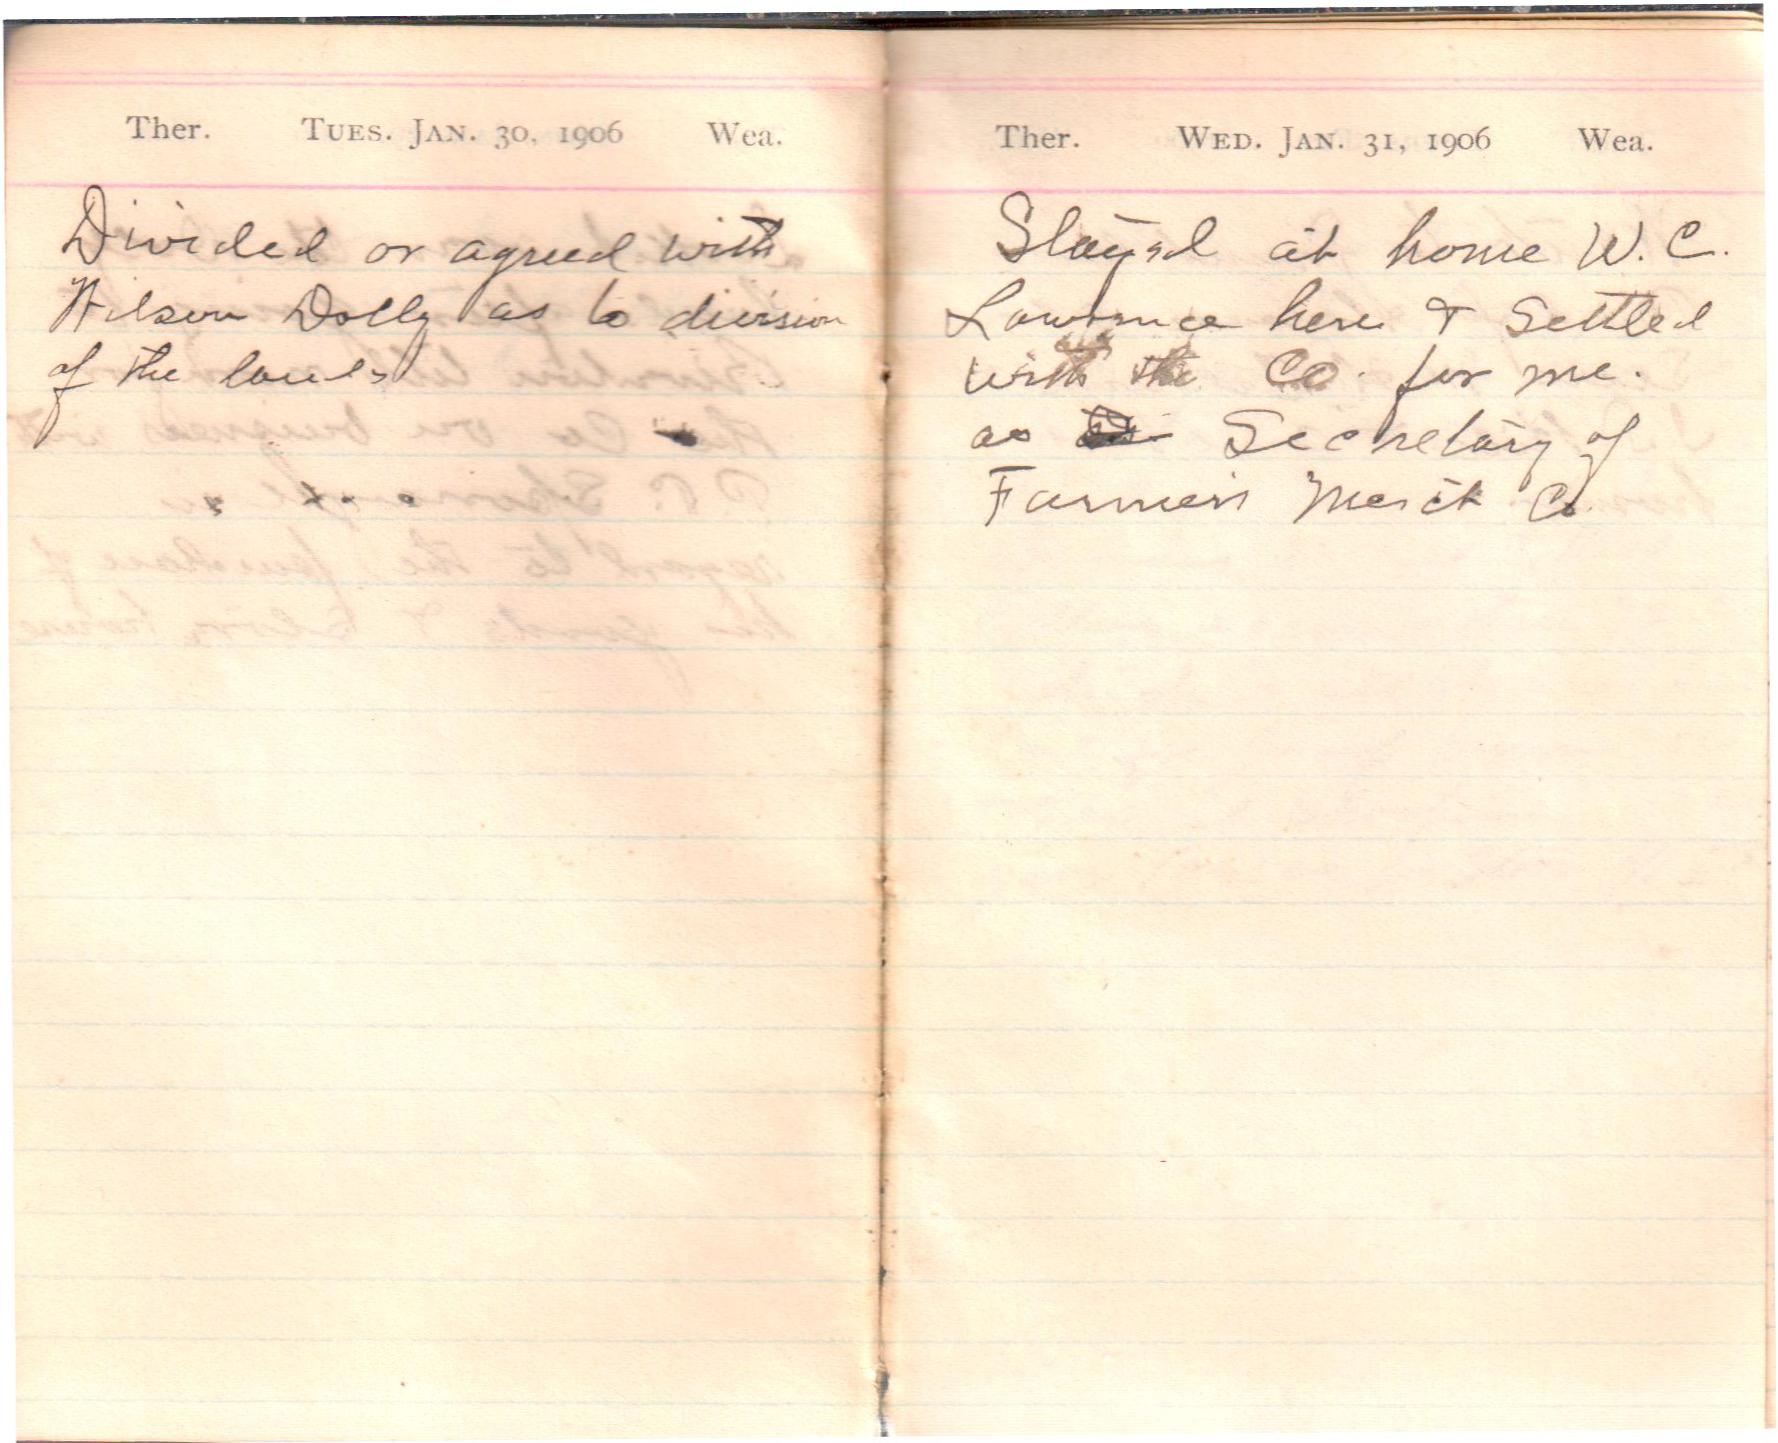 Ther. TUES. JAN. 30, 1906 Wea.
Divided or agreed with
Wilson Dolly as to division
of the lands
Ther. WED. JAN. 31, 1906 Wea.
Stayed at home W. C.
Lawrence here & Settled
with the Co. for me.
as Secretary of
Farmers Merct Co